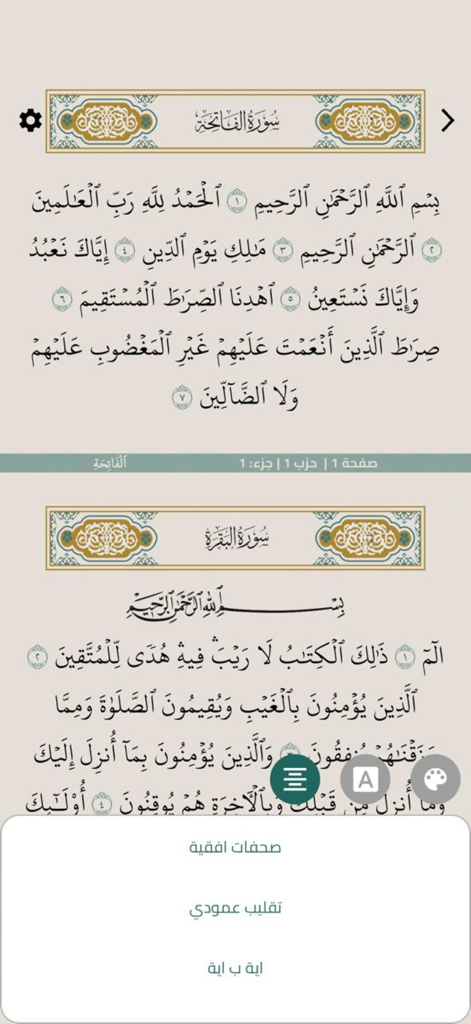 سُورَةُ الفَاتِحَةِ
بِسْمِ ٱللَّهِ ٱلرَّحْمَٰنِ ٱلرَّحِيمِ ١ ٱلْحَمْدُ لِلَّهِ رَبِّ ٱلْعَٰلَمِينَ
٢ ٱلرَّحْمَٰنِ ٱلرَّحِيمِ ٣ مَٰلِكِ يَوْمِ ٱلدِّينِ ٤ إِيَّاكَ نَعْبُدُ
وَإِيَّاكَ نَسْتَعِينُ ٥ ٱهْدِنَا ٱلصِّرَٰطَ ٱلْمُسْتَقِيمَ ٦
صِرَٰطَ ٱلَّذِينَ أَنْعَمْتَ عَلَيْهِمْ غَيْرِ ٱلْمَغْضُوبِ عَلَيْهِمْ
وَلَا ٱلضَّآلِّينَ ٧
صفحة 1 | حزب 1 | جزء: 1 ٱلْفَاتِحَةِ
سُورَةُ البَقَرَةِ
بِسْمِ ٱللَّهِ ٱلرَّحْمَٰنِ ٱلرَّحِيمِ
الٓمٓ ١ ذَٰلِكَ ٱلْكِتَٰبُ لَا رَيْبَۛ فِيهِۛ هُدًى لِّلْمُتَّقِينَ ٢
ٱلَّذِينَ يُؤْمِنُونَ بِٱلْغَيْبِ وَيُقِيمُونَ ٱلصَّلَوٰةَ وَمِمَّا
رَزَقْنَٰهُمْ يُنفِقُونَ وَٱلَّذِينَ يُؤْمِنُونَ بِمَآ أُنزِلَ إِلَيْكَ
وَمَآ أُنزِلَ مِن قَبْلِكَ وَبِٱلْأَخِرَةِ هُمْ يُوقِنُونَ ٤ أُوْلَٰٓئِكَ
A
صحفات افقية
تقليب عمودي
اية ب اية